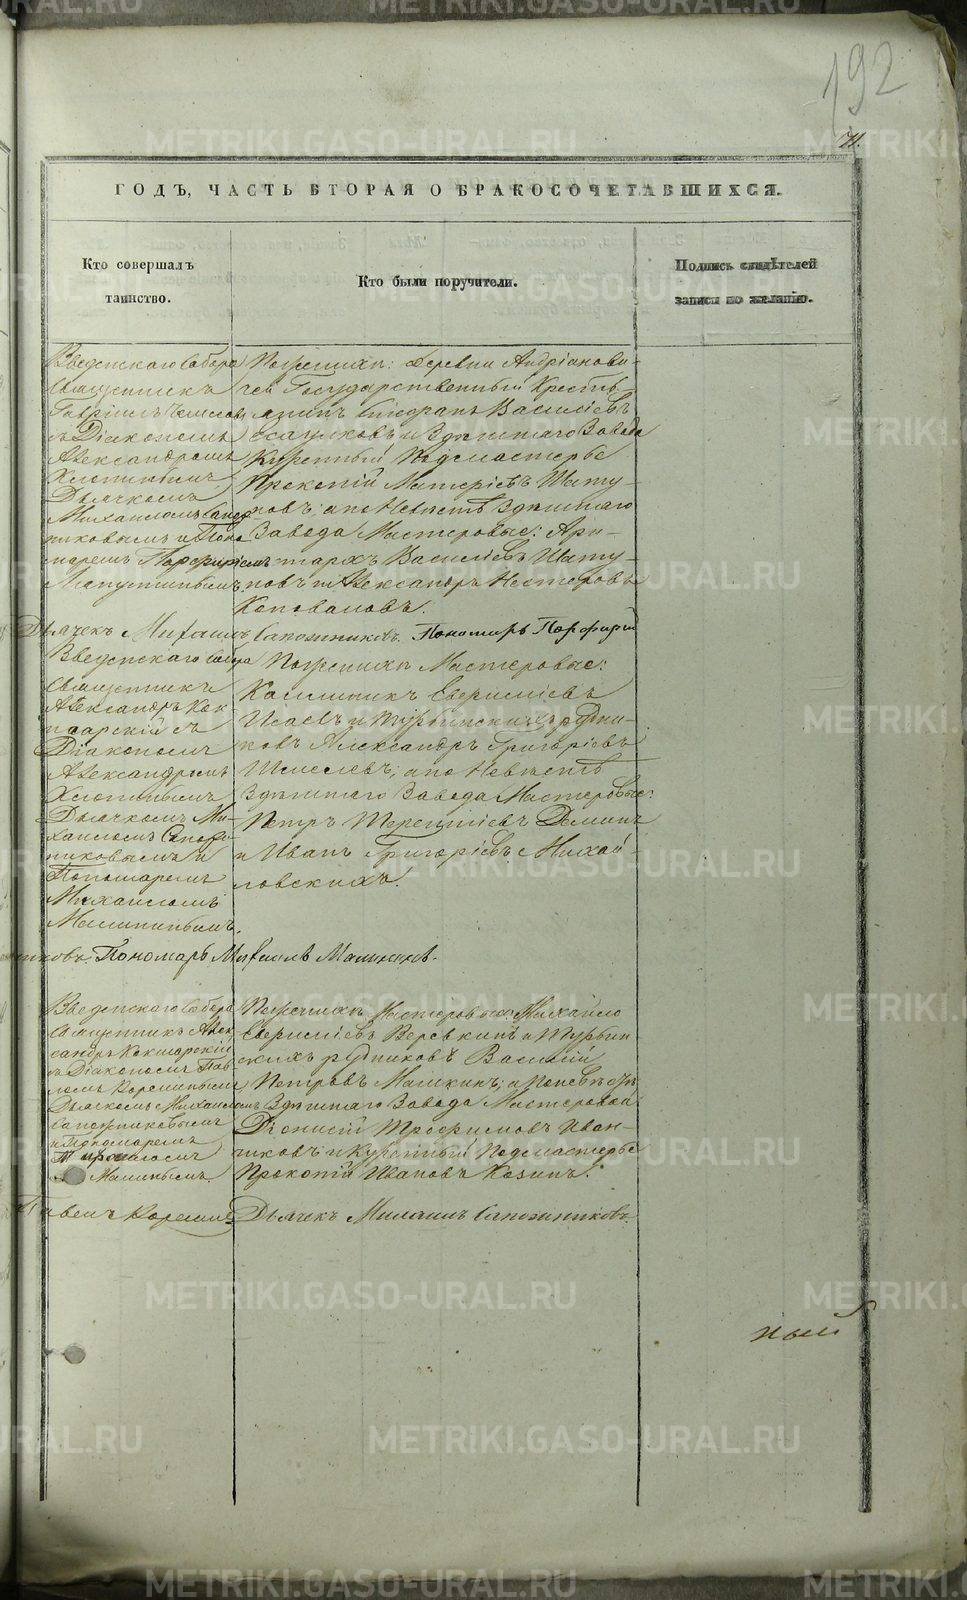 192
71.
ГОДЪ, ЧАСТЬ ВТОРАЯ О БРАКОСОЧЕТАВШИХСЯ.
Кто совершалъ
таинство.
Кто были поручители.
Подпись свидѣтелей
записи по желанію.
Введенскаго Собора
Священникъ
Гавріилъ
съ Діакономъ
Александромъ
Хлопинымъ
Дьячкомъ
Михаиломъ Сапож
никовымъ и Поно
маремъ Порфиріемъ
По женихѣ: деревни Андріанови-
чей Государственный Крестья-
нинъ Васильевъ
Есаулковъ и Здѣшняго Завода
Куренный Подмастерье
Прокопій Шату-
новъ; а по Невѣстѣ Здѣшняго
Завода Мастеровые: Ари-
стархъ Васильевъ Шату-
новъ и Александръ Нестеровъ
Коноваловъ.
Дьячекъ Михаилъ Сапожниковъ. Пономарь Порфирій
Введенскаго Собора
Священникъ
Александръ Кок
шарскій съ
Діакономъ
Александромъ
Хлопинымъ
Дьячкомъ Ми-
хаиломъ Сапож
никовымъ и
Пономаремъ
Михаиломъ
Малининымъ.
По женихѣ Мастеровые:
Калинникъ
Исаевъ и Турьинскихъ рудни-
ковъ Александръ Григорьевъ
Шмелевъ; а по Невѣстѣ
Здѣшняго Завода Мастеровые:
Петръ Терентьевъ Деминъ
и Иванъ Григорьевъ Михай-
ловскихъ.
Пономарь Михаилъ Малининъ.
Введенскаго Собора
Священникъ Алек
сандръ Кокшарскій
съ Діакономъ Пав
ломъ
Дьячкомъ Михаиломъ
Сапожниковымъ
и Пономаремъ
Михаиломъ
Малинымъ
По женихѣ Мастеровые: Михайло
Веревкинъ и Турьин
скихъ рудниковъ Василій
Петровъ Малкинъ; а по невѣстѣ
Здѣшняго Завода Мастеровой
Діонисій Трофимовъ Иван-
никовъ и Куренный Подмастерье
Прокопій Ивановъ Козинъ.
Дьячекъ Михаилъ Сапожниковъ
ный
METRIKI.GASO-URAL.RU